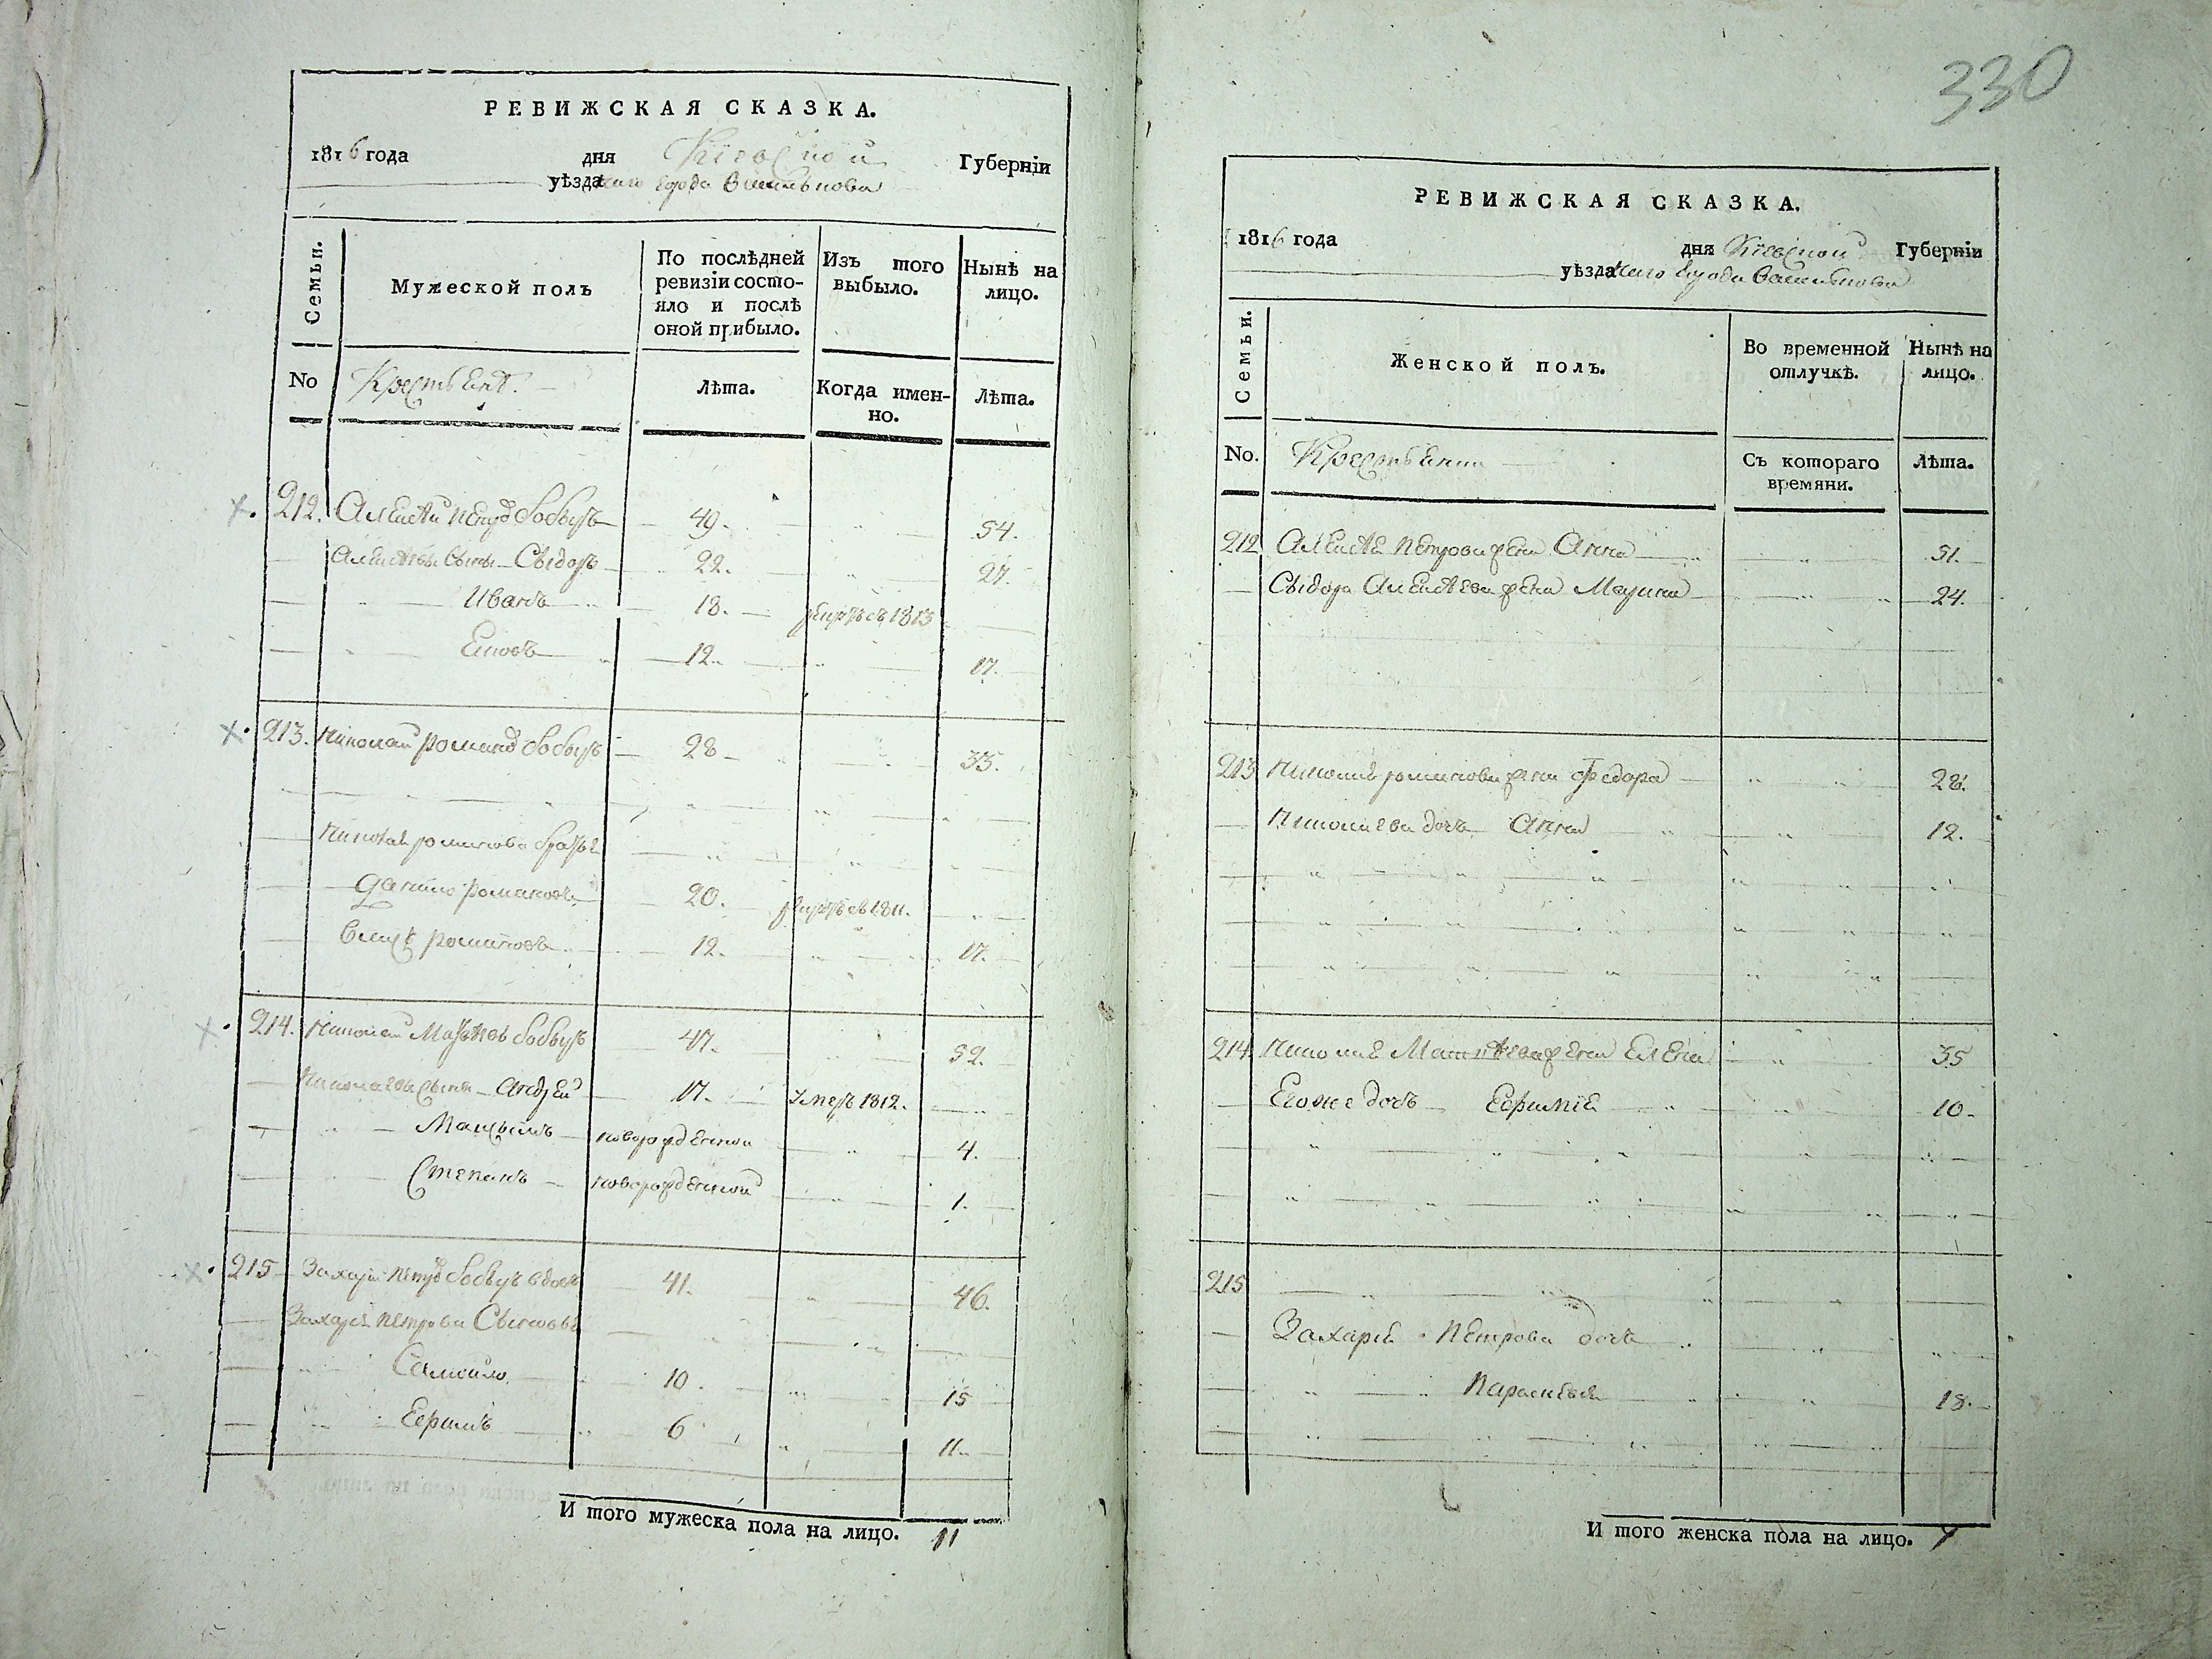 330
РЕВИЖСКАЯ СКАЗКА.
1816 года дня Кіевской Губерніи
уѣзда города Василькова
Семьи. Мужеской полъ По послѣдней ревизіи состояло и послѣ оной прибыло. Изъ того выбыло. Нынѣ на лицо.
No Лѣта. Когда именно. Лѣта.
212. Алексѣй Петровъ бобыль 49. 54.
Алексѣевы сыны Сыдоръ 22. 27.
Иванъ 18. 1813
12. 17.
213. Николай Романовъ бобыль 28 33.
Николая Романова братья
Данило Романовъ 20. 1811.
Романовъ 12. 17.
214. Николай Матвѣевъ бобыль 47. 52.
Николаевы сыны Андрей 17. умеръ 1812.
Максымъ новорожденной 4.
Степанъ новорожденной 1.
215 Захарій Петровъ бобыль вдовъ 41. 46.
Захарія Петрова сыновья
Самойло 10. 15
Ефримъ 6 11.
И того мужеска пола на лицо. 11
РЕВИЖСКАЯ СКАЗКА.
1816 года дня Кіевской Губерніи
уѣзда города Василькова
Семьи. Женской полъ. Во временной отлучкѣ. Нынѣ на лицо.
No. Съ котораго времяни. Лѣта.
212 Алексѣя Петрова жена Анна 51.
Сыдора Алексѣева жена Марина 24.
213 Николая Романова жена Федора 28.
Николаева дочь Анна 12.
214 Николая Матвѣева жена Елена 35
Егоже дочь Ефимія 10.
215
Захарія Петрова дочь
Параскевія 18.
И того женска пола на лицо. 7